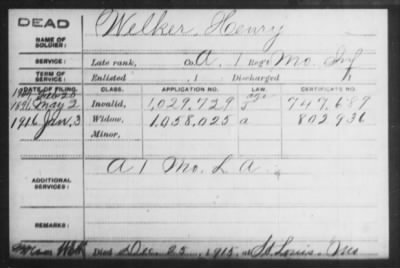 DEAD
NAME OF SOLDIER: Welker, Henry
SERVICE: Late rank, Co. A, 1 Reg't Mo. Inf
TERM OF SERVICE: Enlisted , 1 Discharged , 1
DATE OF FILING. CLASS. APPLICATION NO. LAW. CERTIFICATE NO.
1891 May 2 Invalid, 1,029,729 747,689
1916 Jan. 3 Widow, 1,058,025 a 802936
Minor,
ADDITIONAL SERVICES: A 1 Mo. L A.
REMARKS:
Died Dec. 25, 1915, at St. Louis. Mo